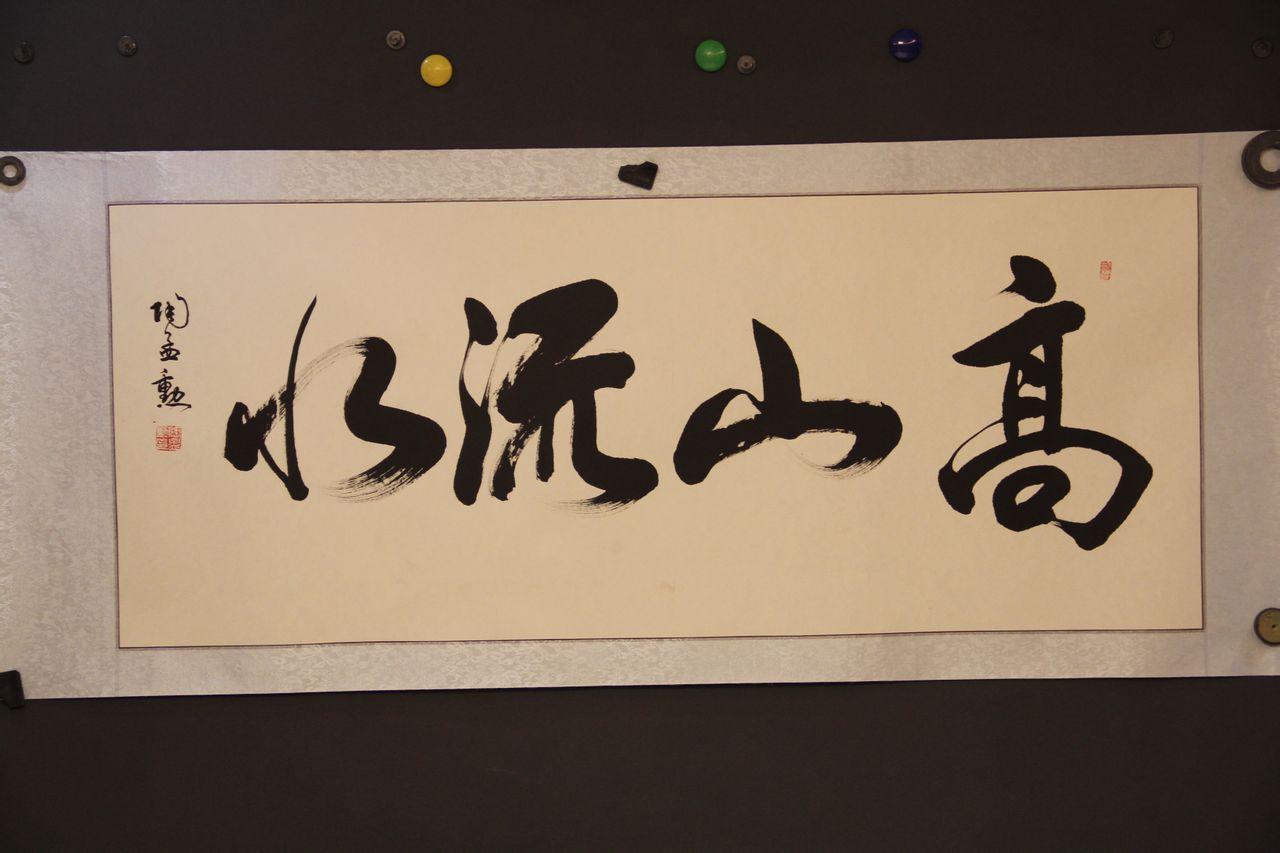 高山流水
陶孟勳